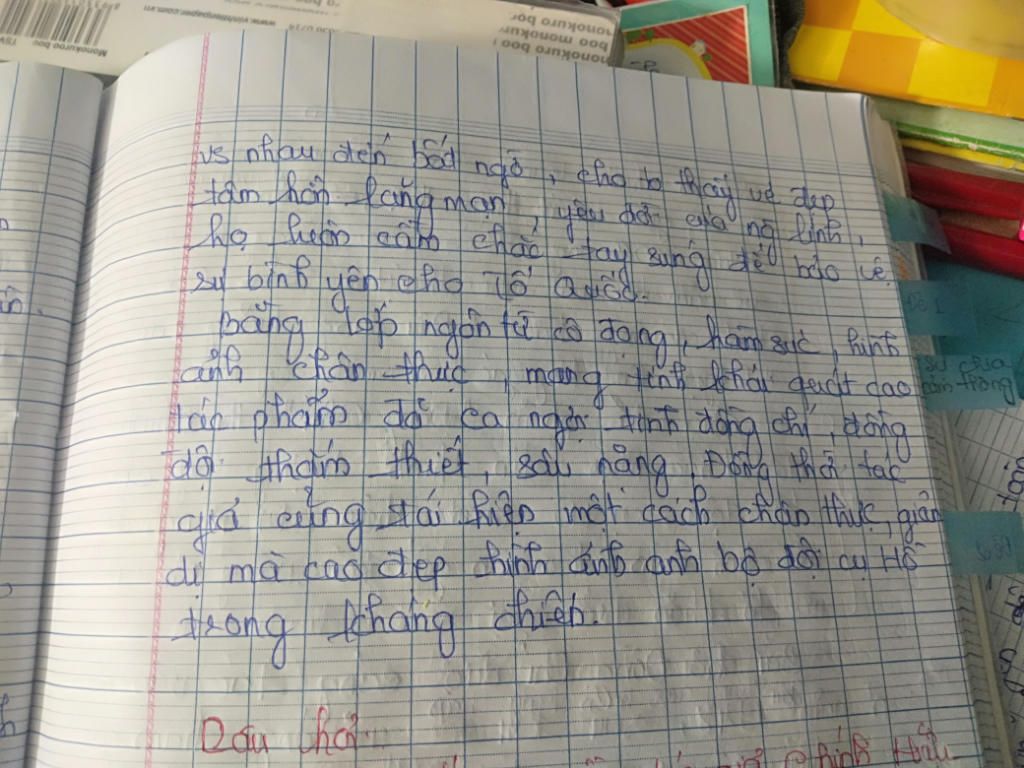 vs nhau đến bất ngờ, cho ta thấy vẻ đẹp
tâm hồn lãng mạn, yêu đời của ng lính,
họ luôn cầm chắc tay súng để bảo vệ
sự bình yên cho Tổ Quốc.
Bằng lớp ngôn từ cô đọng, hàm súc, hình
ảnh chân thực, mang tính khái quát cao
tác phẩm đã ca ngợi tình đồng chí, đồng
đội thắm thiết, sâu nặng. Đồng thời tác
giả cũng tái hiện một cách chân thực, giản
dị mà cao đẹp hình ảnh anh bộ đội cụ Hồ
trong kháng chiến.
Dấu hỏi
Chính Hữu
monokuro boo